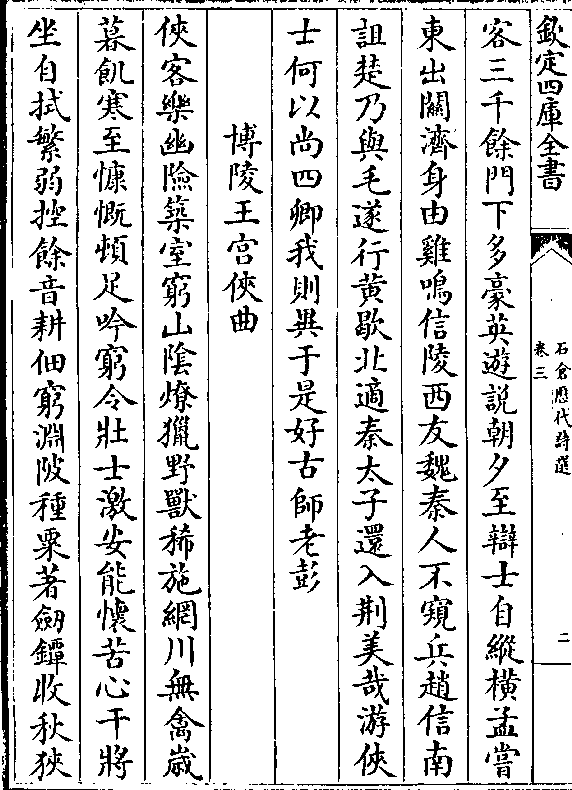 欽定四庫全書
石倉歷代詩選
卷三
二
客三千餘門下多豪英遊說朝夕至辯士自縱橫孟嘗
東出關濟身由雞鳴信陵西反魏秦人不窺兵趙信南
詛楚乃與毛遂行黄歇北適秦太子還入荆美哉游俠
士何以尚四卿我則異于是好古師老彭
博陵王宫俠曲
俠客樂幽險築室窮山陰燎獵野獸稀施網川無禽歲
暮飢寒至慷慨頓足吟窮令壯士激安能懷苦心干將
坐自拭繁弱控餘音耕佃窮淵陂種粟著劒鐔收秋狹